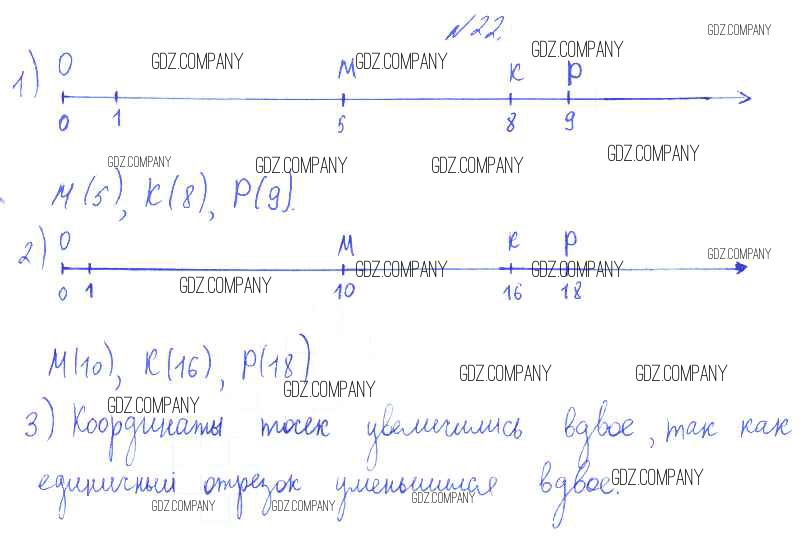 №22.
GDZ.COMPANY
1) O GDZ.COMPANY M GDZ.COMPANY K GDZ.COMPANY P
0 1 5 8 9
GDZ.COMPANY GDZ.COMPANY GDZ.COMPANY GDZ.COMPANY
M(5), K(8), P(9).
2) O M K P GDZ.COMPANY
GDZ.COMPANY GDZ.COMPANY
0 1 GDZ.COMPANY 10 16 18
M(10), K(16), P(18)
GDZ.COMPANY GDZ.COMPANY GDZ.COMPANY
GDZ.COMPANY
3) Координаты точек увеличились вдвое, так как
единичный отрезок уменьшился вдвое.
GDZ.COMPANY
GDZ.COMPANY GDZ.COMPANY GDZ.COMPANY